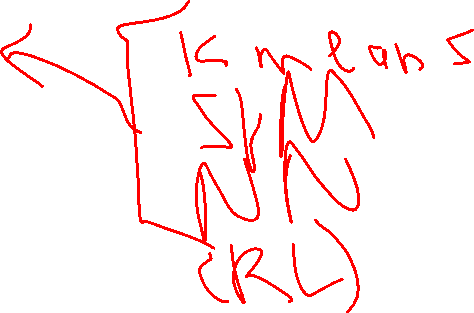 K means
SVM
NN
(RL)